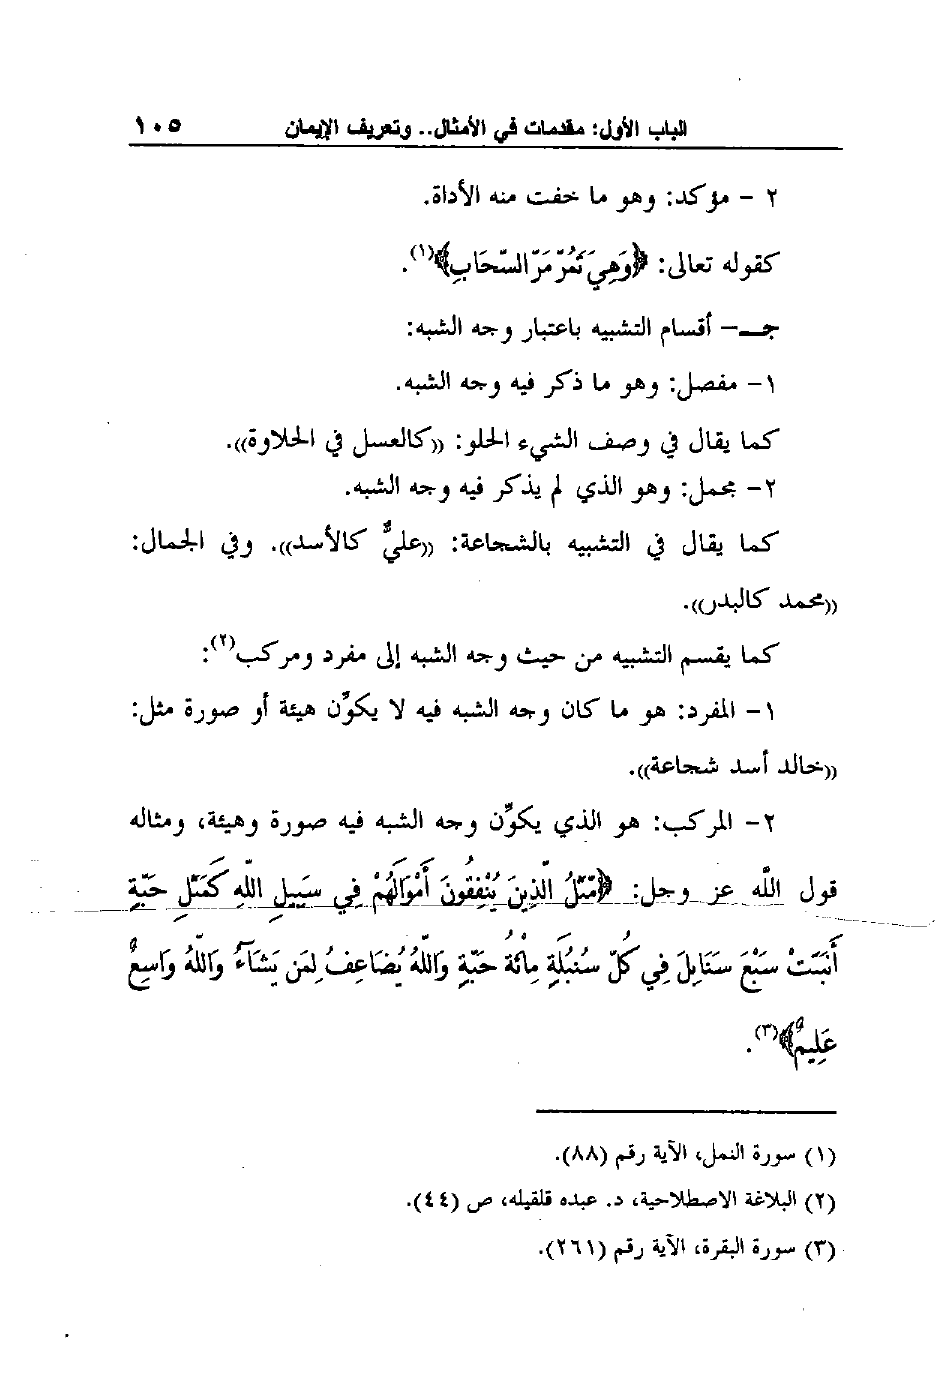 الباب الأول: مقدمات في الأمثال.. وتعريف الإيمان ١٠٥
٢ - مؤكد: وهو ما خفت منه الأداة.
كقوله تعالى: ﴿وَهِيَ تَمُرُّ مَرَّ السَّحَابِ﴾(١).
جـ- أقسام التشبيه باعتبار وجه الشبه:
١- مفصل: وهو ما ذكر فيه وجه الشبه.
كما يقال في وصف الشيء الحلو: ((كالعسل في الحلاوة)).
٢- مجمل: وهو الذي لم يذكر فيه وجه الشبه.
كما يقال في التشبيه بالشجاعة: ((عليٌّ كالأسد)). وفي الجمال:
((محمد كالبدر)).
كما يقسم التشبيه من حيث وجه الشبه إلى مفرد ومركب(٢):
١- المفرد: هو ما كان وجه الشبه فيه لا يكوِّن هيئة أو صورة مثل:
((خالد أسد شجاعة)).
٢- المركب: هو الذي يكوِّن وجه الشبه فيه صورة وهيئة، ومثاله
قول الله عز وجل: ﴿مَّثَلُ الَّذِينَ يُنْفِقُونَ أَمْوَالَهُمْ فِي سَبِيلِ اللَّهِ كَمَثَلِ حَبَّةٍ
أَنْبَتَتْ سَبْعَ سَنَابِلَ فِي كُلِّ سُنْبُلَةٍ مِائَةُ حَبَّةٍ وَاللَّهُ يُضَاعِفُ لِمَن يَشَآءُ وَاللَّهُ وَاسِعٌ
عَلِيمٌ﴾(٣).
(١) سورة النمل، الآية رقم (٨٨).
(٢) البلاغة الاصطلاحية، د. عبده قلقيله، ص (٤٤).
(٣) سورة البقرة، الآية رقم (٢٦١).